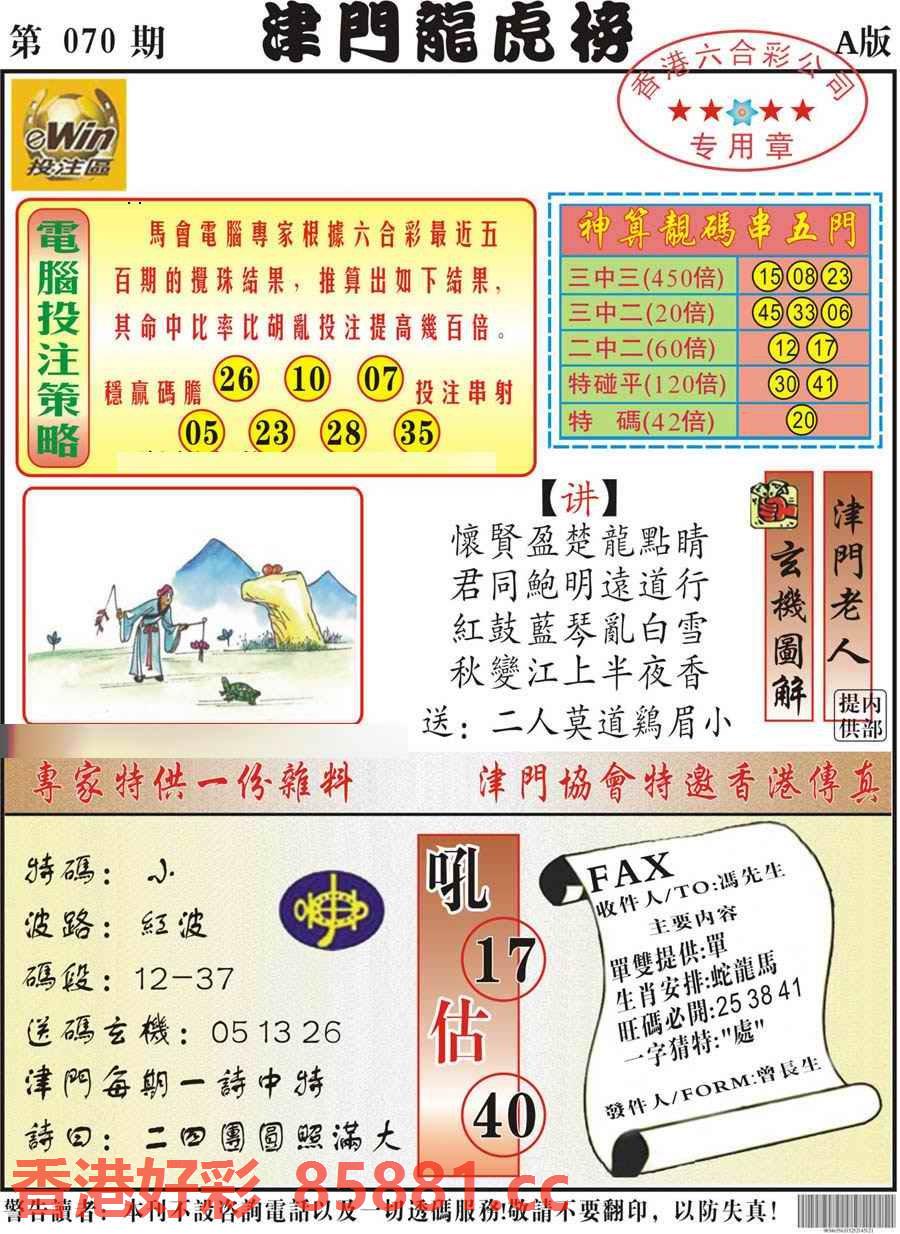 第 070 期
津門龍虎榜
A版
香港六合彩公司
专用章
eWin
投注區
電腦投注策略
馬會電腦專家根據六合彩最近五
百期的攪珠結果，推算出如下結果，
其命中比率比胡亂投注提高幾百倍。
穩贏碼膽 26 10 07 投注串射
05 23 28 35
神算靚碼串五門
三中三(450倍) 15 08 23
三中二(20倍) 45 33 06
二中二(60倍) 12 17
特碰平(120倍) 30 41
特 碼(42倍) 20
【讲】
懷賢盈楚龍點睛
君同鮑明遠道行
紅鼓藍琴亂白雪
秋變江上半夜香
送：二人莫道鷄眉小
玄機圖解
津門老人
内部提供
專家特供一份雜料
津門協會特邀香港傳真
特碼：小
波路：紅波
碼段：12-37
送碼玄機：05 13 26
津門每期一詩中特
詩曰：二四團圓照滿大
吼
17
估
40
FAX
收件人/TO:馮先生
主要内容
單雙提供:單
生肖安排:蛇龍馬
旺碼必開:25 38 41
一字猜特:"處"
發件人/FORM:曾長生
香港好彩 85881.cc
警告讀者：本刊不設咨詢電話以及一切透碼服務!敬請不要翻印，以防失真!